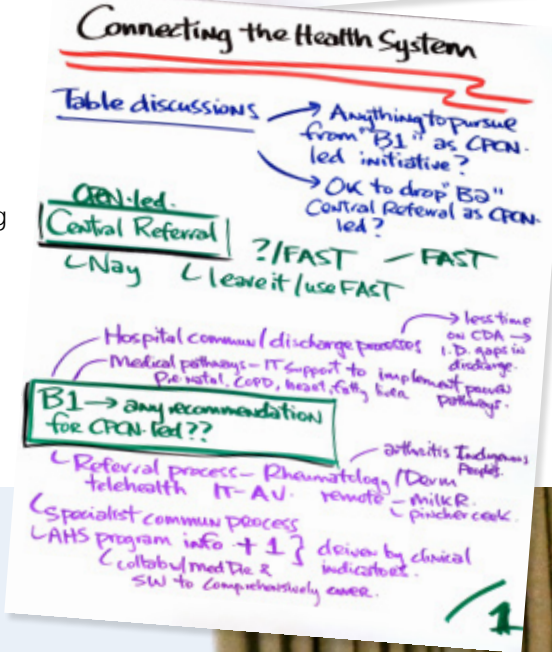 Connecting the Health System
Table discussions
→ Anything to pursue
from "B1" as CPCN-
led initiative?
→ OK to drop "B2"
Central Referral as CPCN-
led?
CPCN-led.
Central Referral
?/FAST – FAST
Nay
leave it/use FAST
Hospital commun/discharge processes
→ less time
on CDA →
I.D. gaps in
discharge.
Medical pathways – IT support to implement
Pre natal, COPD, heart, fatty liver
pathways.
B1 → any recommendation
for CPCN-led??
Referral process – Rheumatology/Derm
arthritis Indigenous
Peoples.
telehealth IT-AV. remote – Milk R.
pincher creek.
Specialist commun process
AHS program info + 1 } driven by clinical
indicators.
collab w/med Dir &
SW to comprehensively cover.
1
g